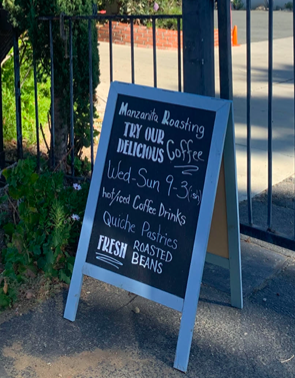 Manzanita Roasting
TRY OUR
DELICIOUS Coffee
Wed-Sun 9-3(ish)
hot/iced Coffee Drinks
Quiche Pastries
FRESH ROASTED
BEANS